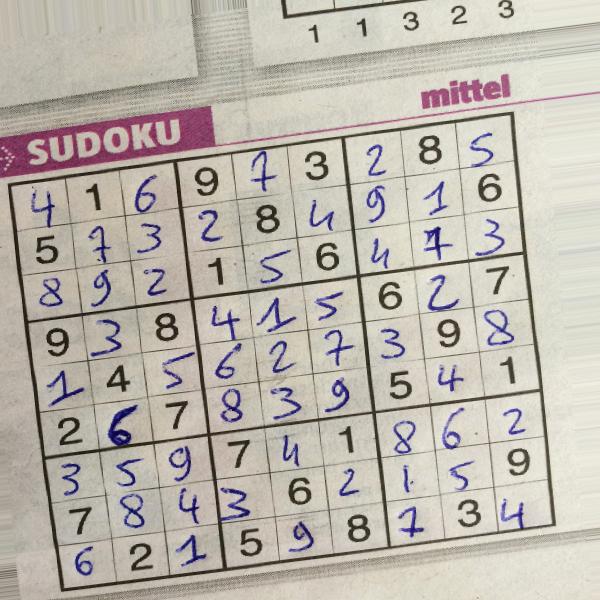 1 1 3 2 3
mittel
SUDOKU
4 1 6 9 7 3 2 8 5
5 7 3 2 8 4 9 1 6
8 9 2 1 5 6 4 7 3
9 3 8 4 1 5 6 2 7
1 4 5 6 2 7 3 9 8
2 6 7 8 3 9 5 4 1
3 5 9 7 4 1 8 6 2
7 8 4 3 6 2 1 5 9
6 2 1 5 9 8 7 3 4